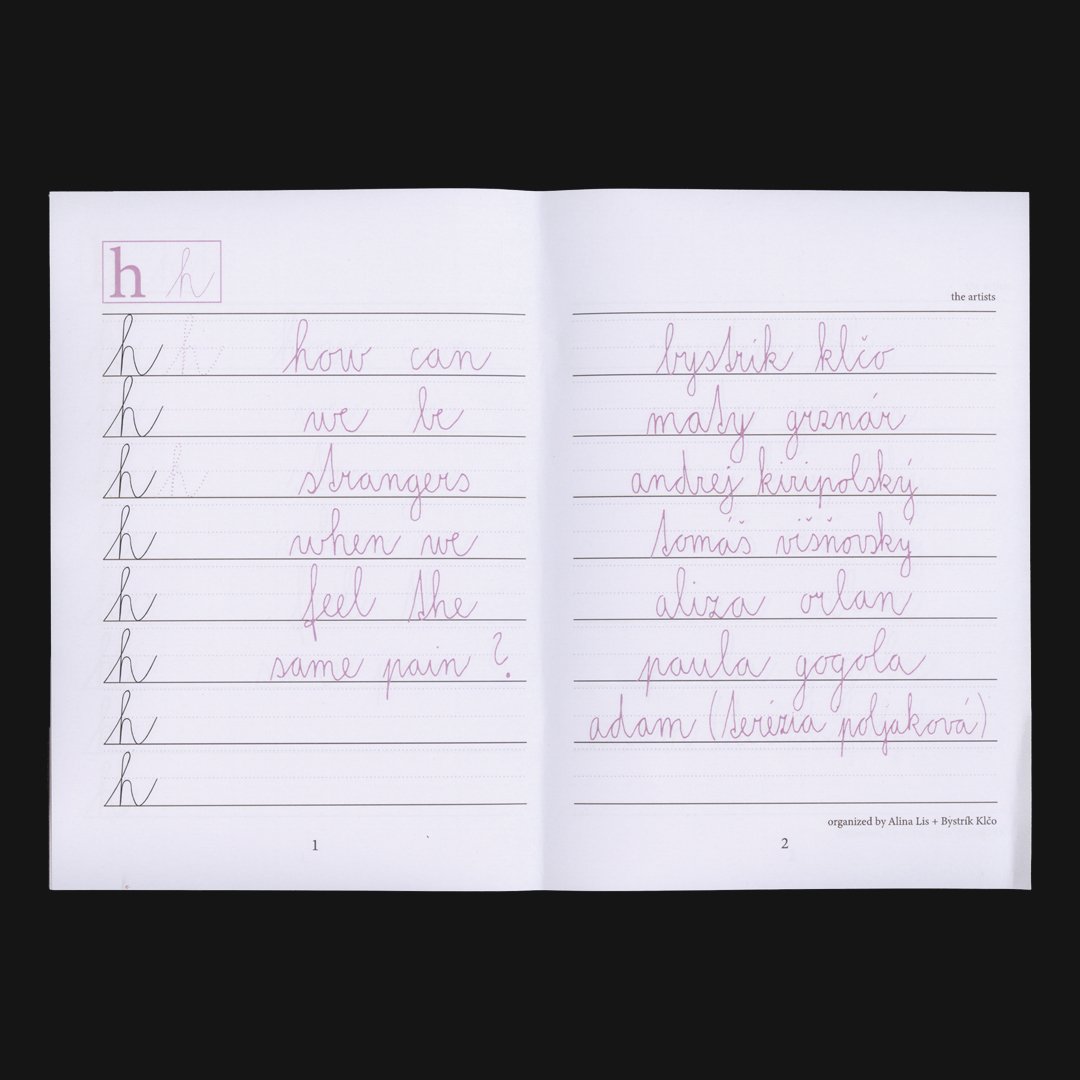 h h
h h how can
h we be
h h strangers
h when we
h feel the
h same pain ?
h
h
1
the artists
bystrík klčo
maty grznár
andrej kiripolský
tomáš višňovský
aliza orlan
paula gogola
adam (terézia poljaková)
organized by Alina Lis + Bystrík Klčo
2